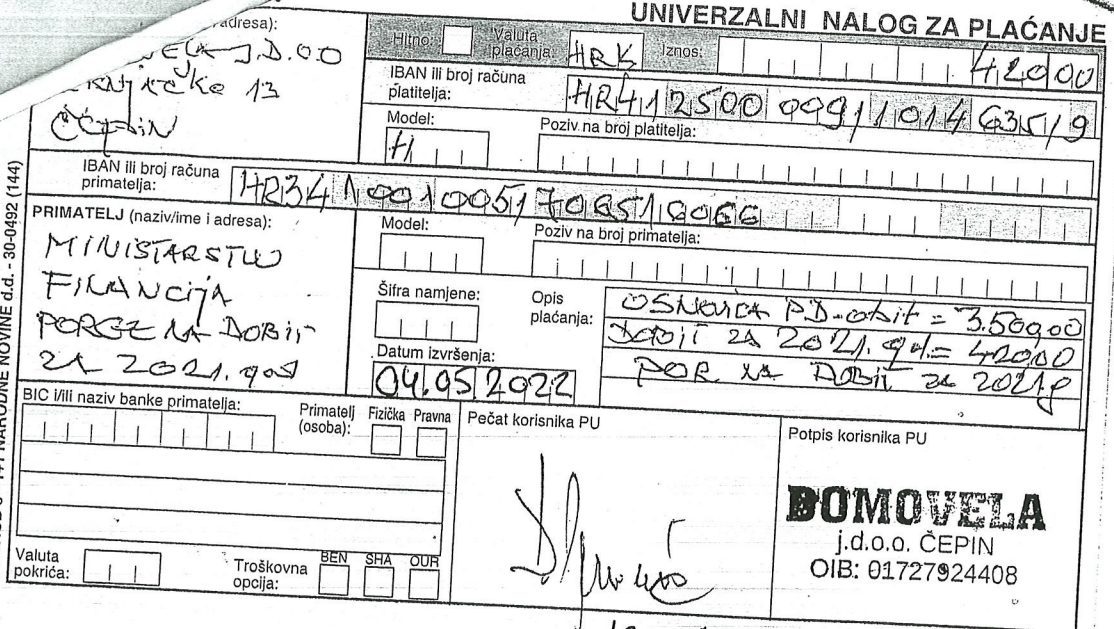 UNIVERZALNI NALOG ZA PLAĆANJE
adresa):
J.D.O.O
13
ČEPIN
Hitno:
Valuta plaćanja:
HRK
Iznos:
42000
IBAN ili broj računa platitelja:
HR412500 0091101463519
Model:
H
Poziv na broj platitelja:
IBAN ili broj računa primatelja:
HR3410010051706516066
PRIMATELJ (naziv/ime i adresa):
MINISTARSTVO
FINANCIJA
POREZ NA DOBIT
ZA 2021. god
Model:
Poziv na broj primatelja:
Šifra namjene:
Opis plaćanja:
OSNOVICA PD-obit = 3.500,00
za 2021. = 420,00
POR NA DOBIT za 2021g
Datum izvršenja:
04.05.2022
BIC i/ili naziv banke primatelja:
Primatelj (osoba):
Fizička
Pravna
Pečat korisnika PU
Potpis korisnika PU
DOMOVELA
j.d.o.o. ČEPIN
OIB: 01727924408
Valuta pokrića:
Troškovna opcija:
BEN
SHA
OUR
NARODNE NOVINE d.d. - 30-0492 (144)